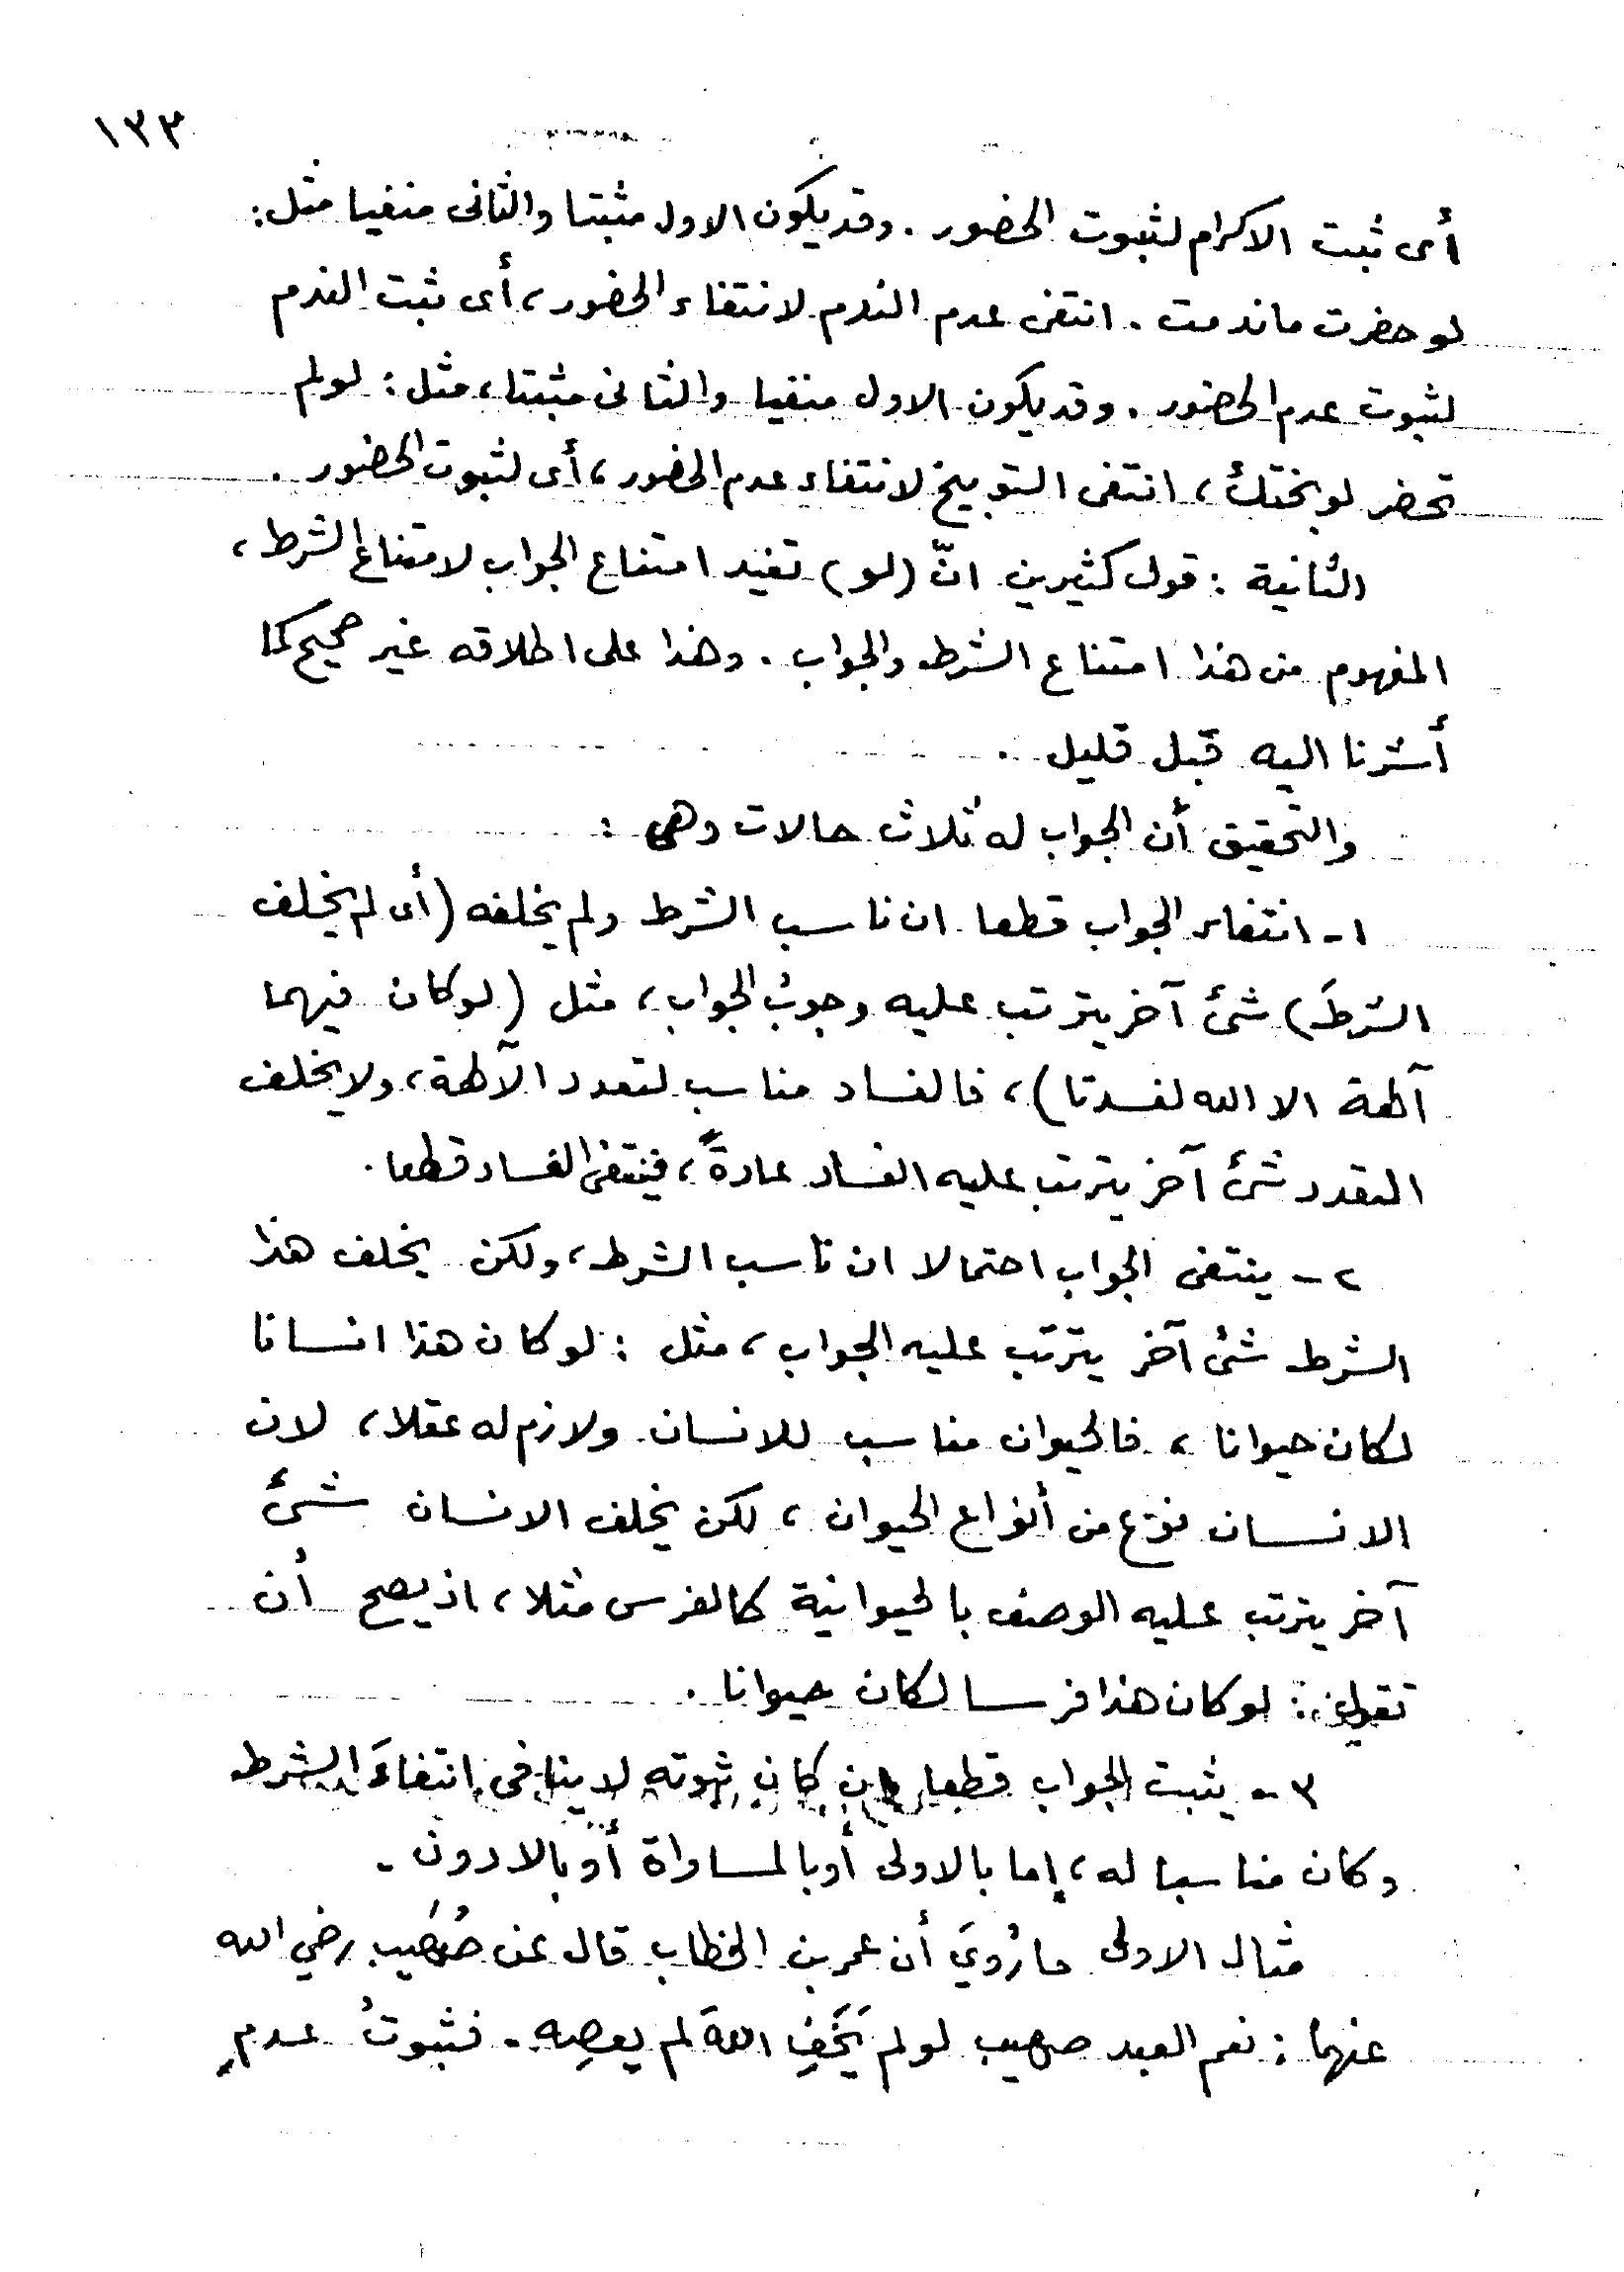 ١٣٣
أى ثبت الاكرام لثبوت الحضور . وقد يكون الاول مثبتا والثانى منفيا مثل :
لو حضرت ماندمت . انتفى عدم الندم لانتفاء الحضور ، أى ثبت الندم
لثبوت عدم الحضور . وقد يكون الاول منفيا والثانى مثبتا ، مثل : لولم
تحضر لوبختك ، انتفى التوبيخ لانتفاء عدم الحضور ، أى لثبوت الحضور .
الثانية : قول كثيرين انّ (لو) تفيد امتناع الجواب لامتناع الشرط ،
المفهوم من هذا امتناع الشرط والجواب . وهذا على اطلاقه غير صحيح كما
أشرنا اليه قبل قليل .
والتحقيق أن الجواب له ثلاث حالات وهى :
١ - انتفاء الجواب قطعا ان ناسب الشرط ولم يخلفه (أى لم يخلف
الشرطَ) شئ آخر يترتب عليه وجوبُ الجواب ، مثل (لوكان فيهما
آلهة الا الله لفسدتا) ، فالفساد مناسب لتعدد الآلهة ، ولا يخلف
التعدد شئ آخر يترتب عليه الفساد عادةً ، فينتفى الفساد قطعا .
٢ - ينتفى الجواب احتمالا ان ناسب الشرط ، ولكن يخلف هذا
الشرط شئ آخر يترتب عليه الجواب ، مثل : لو كان هذا انسانا
لكان حيوانا ، فالحيوان مناسب للانسان ولازم له عقلا ، لان
الانسان نوع من أنواع الحيوان ، لكن يخلف الانسان شئ
آخر يترتب عليه الوصف بالحيوانية كالفرس مثلا ، اذ يصح أن
تقول : لو كان هذا فرسا لكان حيوانا .
٣ - يثبت الجواب قطعا ان كان ثبوته لا ينافى انتفاءَ الشرط
وكان مناسبا له ، إما بالاولى أو بالمساواة أو بالادون .
مثال الاولى مارُويَ أن عمر بن الخطاب قال عن صُهَيب رضي الله
عنهما : نعم العبد صهيب لو لم يَخَفِ اللهَ لم يعصِه . فثبوتُ عدمِ